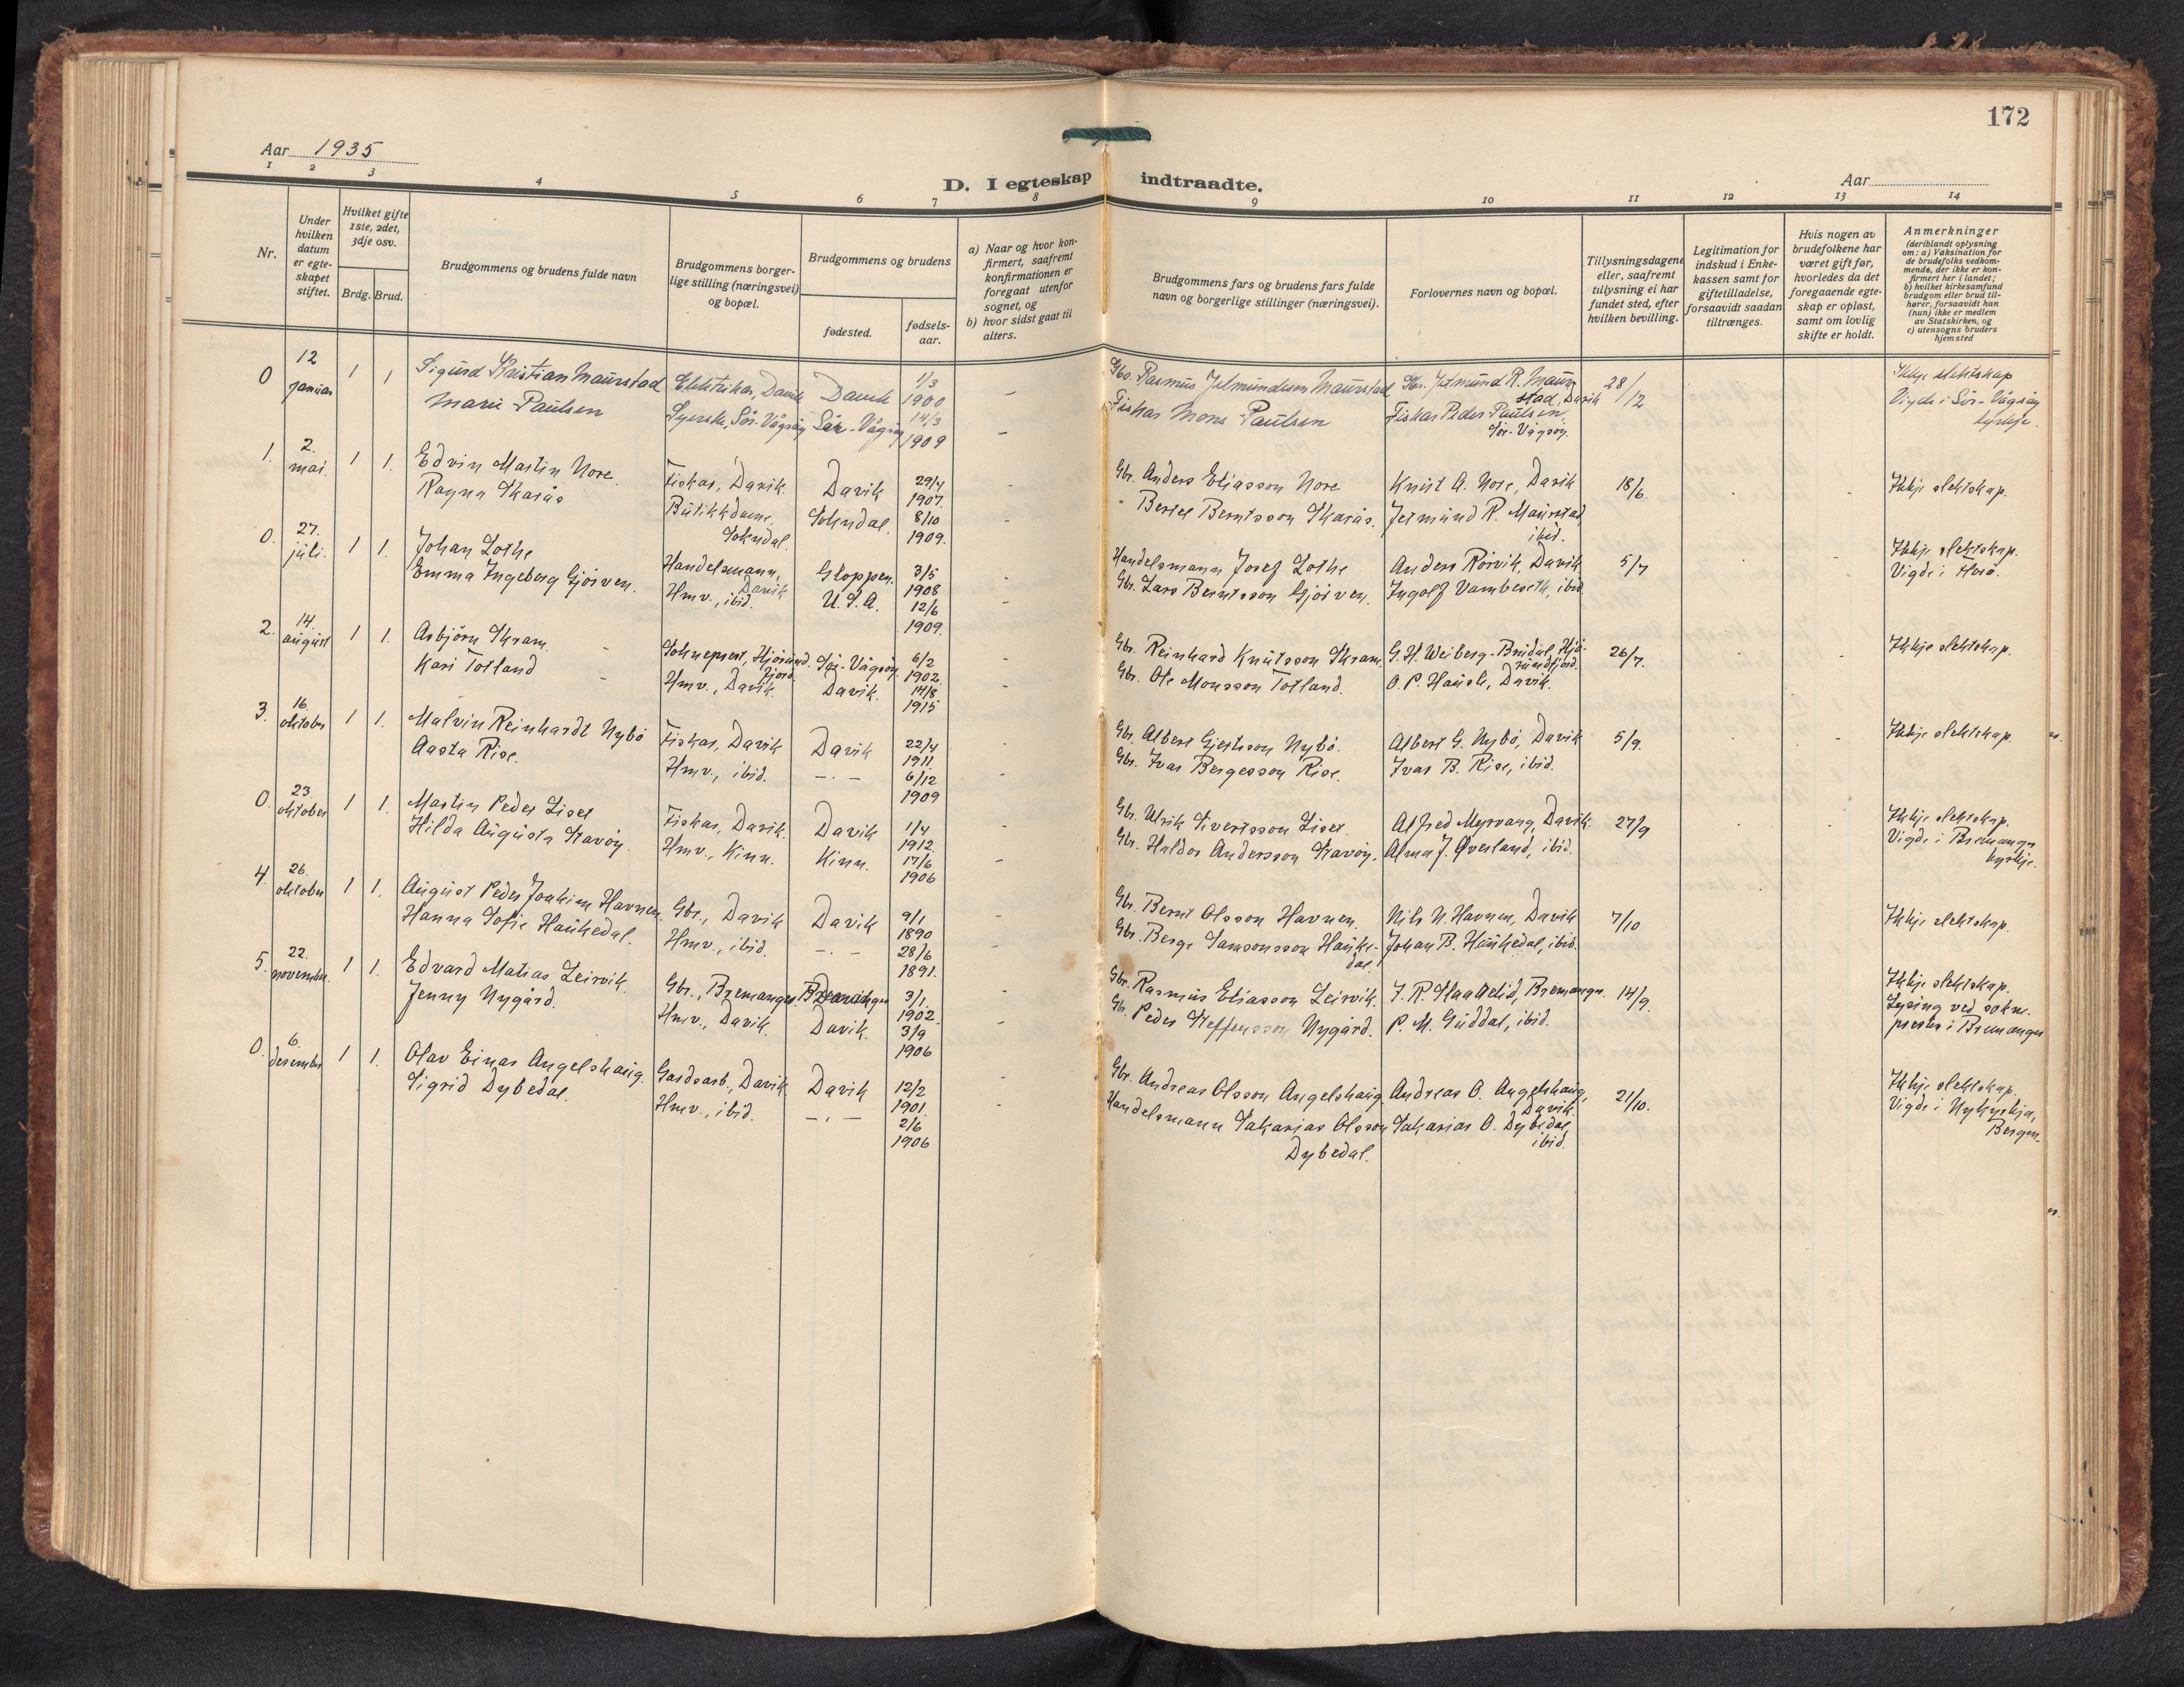 172
Aar 1935
Aar
D. I egteskap indtraadte.
1 2 3 4 5 6 7 8 9 10 11 12 13 14
Nr.
Under hvilken datum er egteskapet stiftet.
Hvilket gifte 1ste, 2det, 3dje osv.
Brdg. Brud.
Brudgommens og brudens fulde navn
Brudgommens borgerlige stilling (næringsvei) og bopæl.
Brudgommens og brudens
fødested.
fødselsaar.
a) Naar og hvor konfirmert, saafremt konfirmationen er foregaat utenfor sognet, og
b) hvor sidst gaat til alters.
Brudgommens fars og brudens fars fulde navn og borgerlige stillinger (næringsvei).
Forlovernes navn og bopæl.
Tillysningsdagene eller, saafremt tillysning ei har fundet sted, efter hvilken bevilling.
Legitimation for indskud i Enkekassen samt for giftetilladelse, forsaavidt saadan tiltrænges.
Hvis nogen av brudefolkene har været gift før, hvorledes da det foregaaende egteskap er opløst, samt om lovlig skifte er holdt.
Anmerkninger (deriblandt oplysning om: a) Vaksination for de brudefolks vedkommende, der ikke er konfirmert her i landet; b) hvilket kirkesamfund brudgom eller brud tilhører, forsaavidt han (hun) ikke er medlem av Statskirken, og c) utensogns bruders hjemsted
0 12 januar 1 1 Sigurd Kristian Maurstad Elektrikar, Davik Davik 1/3 1900 - Gbr. Rasmus Jetmundsen Maurstad Gbr. Jetmund R. Maurstad, Davik 28/12 Ikkje slektskap
Marie Paulsen Syerske, Sör-Vågsöy Sör-Vågsöy 14/3 1909 - Fiskar Mons Paulsen Fiskar Peder Paulsen, Sör-Vågsöy. Vigde i Sör-Vågsöy kyrkje.
1. 2. mai. 1 1. Edvin Martin Nore. Fiskar, Davik. Davik 29/4 1907. - Gbr. Anders Eliasson Nore Knut A. Nore, Davik 18/6 - - Ikkje slektskap.
Ragna Skarås Butikkdame, Sokndal. Sokndal. 8/10 1909. - " Bertel Berntsson Skarås. Jetmund R. Maurstad, ibid.
0. 27. juli. 1 1. Johan Lothe Handelsmann, Davik Gloppen. 3/5 1908 - Handelsmann Josef Lothe Anders Rörvik, Davik 5/7 - - Ikkje slektskap.
Emma Ingeborg Gjörven. Hmv., ibid. U.S.A. 12/6 1909. - Gbr. Lars Berntsson Gjörven. Ingolf Vambeseth, ibid. Vigde i Herö.
2. 14. august 1 1. Asbjörn Skram. - Sokneprest, Hjörundfjord. Sör-Vågsöy. 6/2 1902. - Gbr. Reinhard Knutsson Skram. G. H. Weiberg-Bridal, Hjörundfjord. 26/7. - - Ikkje slektskap.
Kari Totland - Hmv., Davik. Davik. 14/8 1915 - Gbr. Ole Monsson Totland. O. P. Hauge, Davik.
3. 16. oktober 1 1. Malvin Reinhardt Nybö Fiskar, Davik Davik 22/4 1911. - Gbr. Albert Gjertsson Nybö. Albert G. Nybö, Davik 5/9. - - Ikkje slektskap.
Aasta Rise. Hmv., ibid. -.- 6/12 1909 - Gbr. Ivar Bergesson Rise. Ivar B. Rise, ibid.
0. 23. oktober 1 1. Martin Peder Liset Fiskar, Davik. Davik 1/4 1912. - Gbr. Ulrik Sivertsson Liset. Alfred Myrvang, Davik. 27/9 - - Ikkje slektskap.
Hilda Augusta Stavöy. Hmv., Kinn. Kinn. 17/6 1906 - Gbr. Haldor Andersson Stavöy. Alma J. Øverland, ibid. Vigde i Bremanger kyrkje.
4. 26. oktober 1 1. August Peder Joakim Havnen. Gbr., Davik Davik 9/1 1890 - Gbr. Bernt Olsson Havnen. Nils N. Havnen, Davik 7/10 - - Ikkje slektskap.
Hanna Sofie Haukedal. Hmv., ibid. -.- 28/6 1891. - Gbr. Berge Samsonsson Haukedal. Johan B. Haukedal, ibid.
5. 22. november. 1 1. Edvard Matias Leirvik. Gbr., Bremanger Bremanger 3/1. 1902. - Gbr. Rasmus Eliasson Leirvik. Bremanger. 14/9. - - Ikkje slektskap.
Jenny Nygård. Hmv., Davik. Davik. 3/9 1906 - Gbr. Peder Steffensson Nygård. P. M. Guddal, ibid. Lysing ved sokneprester i Bremanger
0. 6. desember 1 1. Olav Einar Angelshaug. Gardsarb., Davik. Davik 12/2 1901. - Gbr. Andreas Olsson Angelshaug. Andreas O. Angelshaug, Davik. 21/10. - - Ikkje slektskap.
Sigrid Dybedal. Hmv., ibid. -.- 2/6 1906 - Handelsmann Sakarias Olsson Dybedal. Sakarias O. Dybedal, ibid. Vigde i Nykyrkja, Bergen.